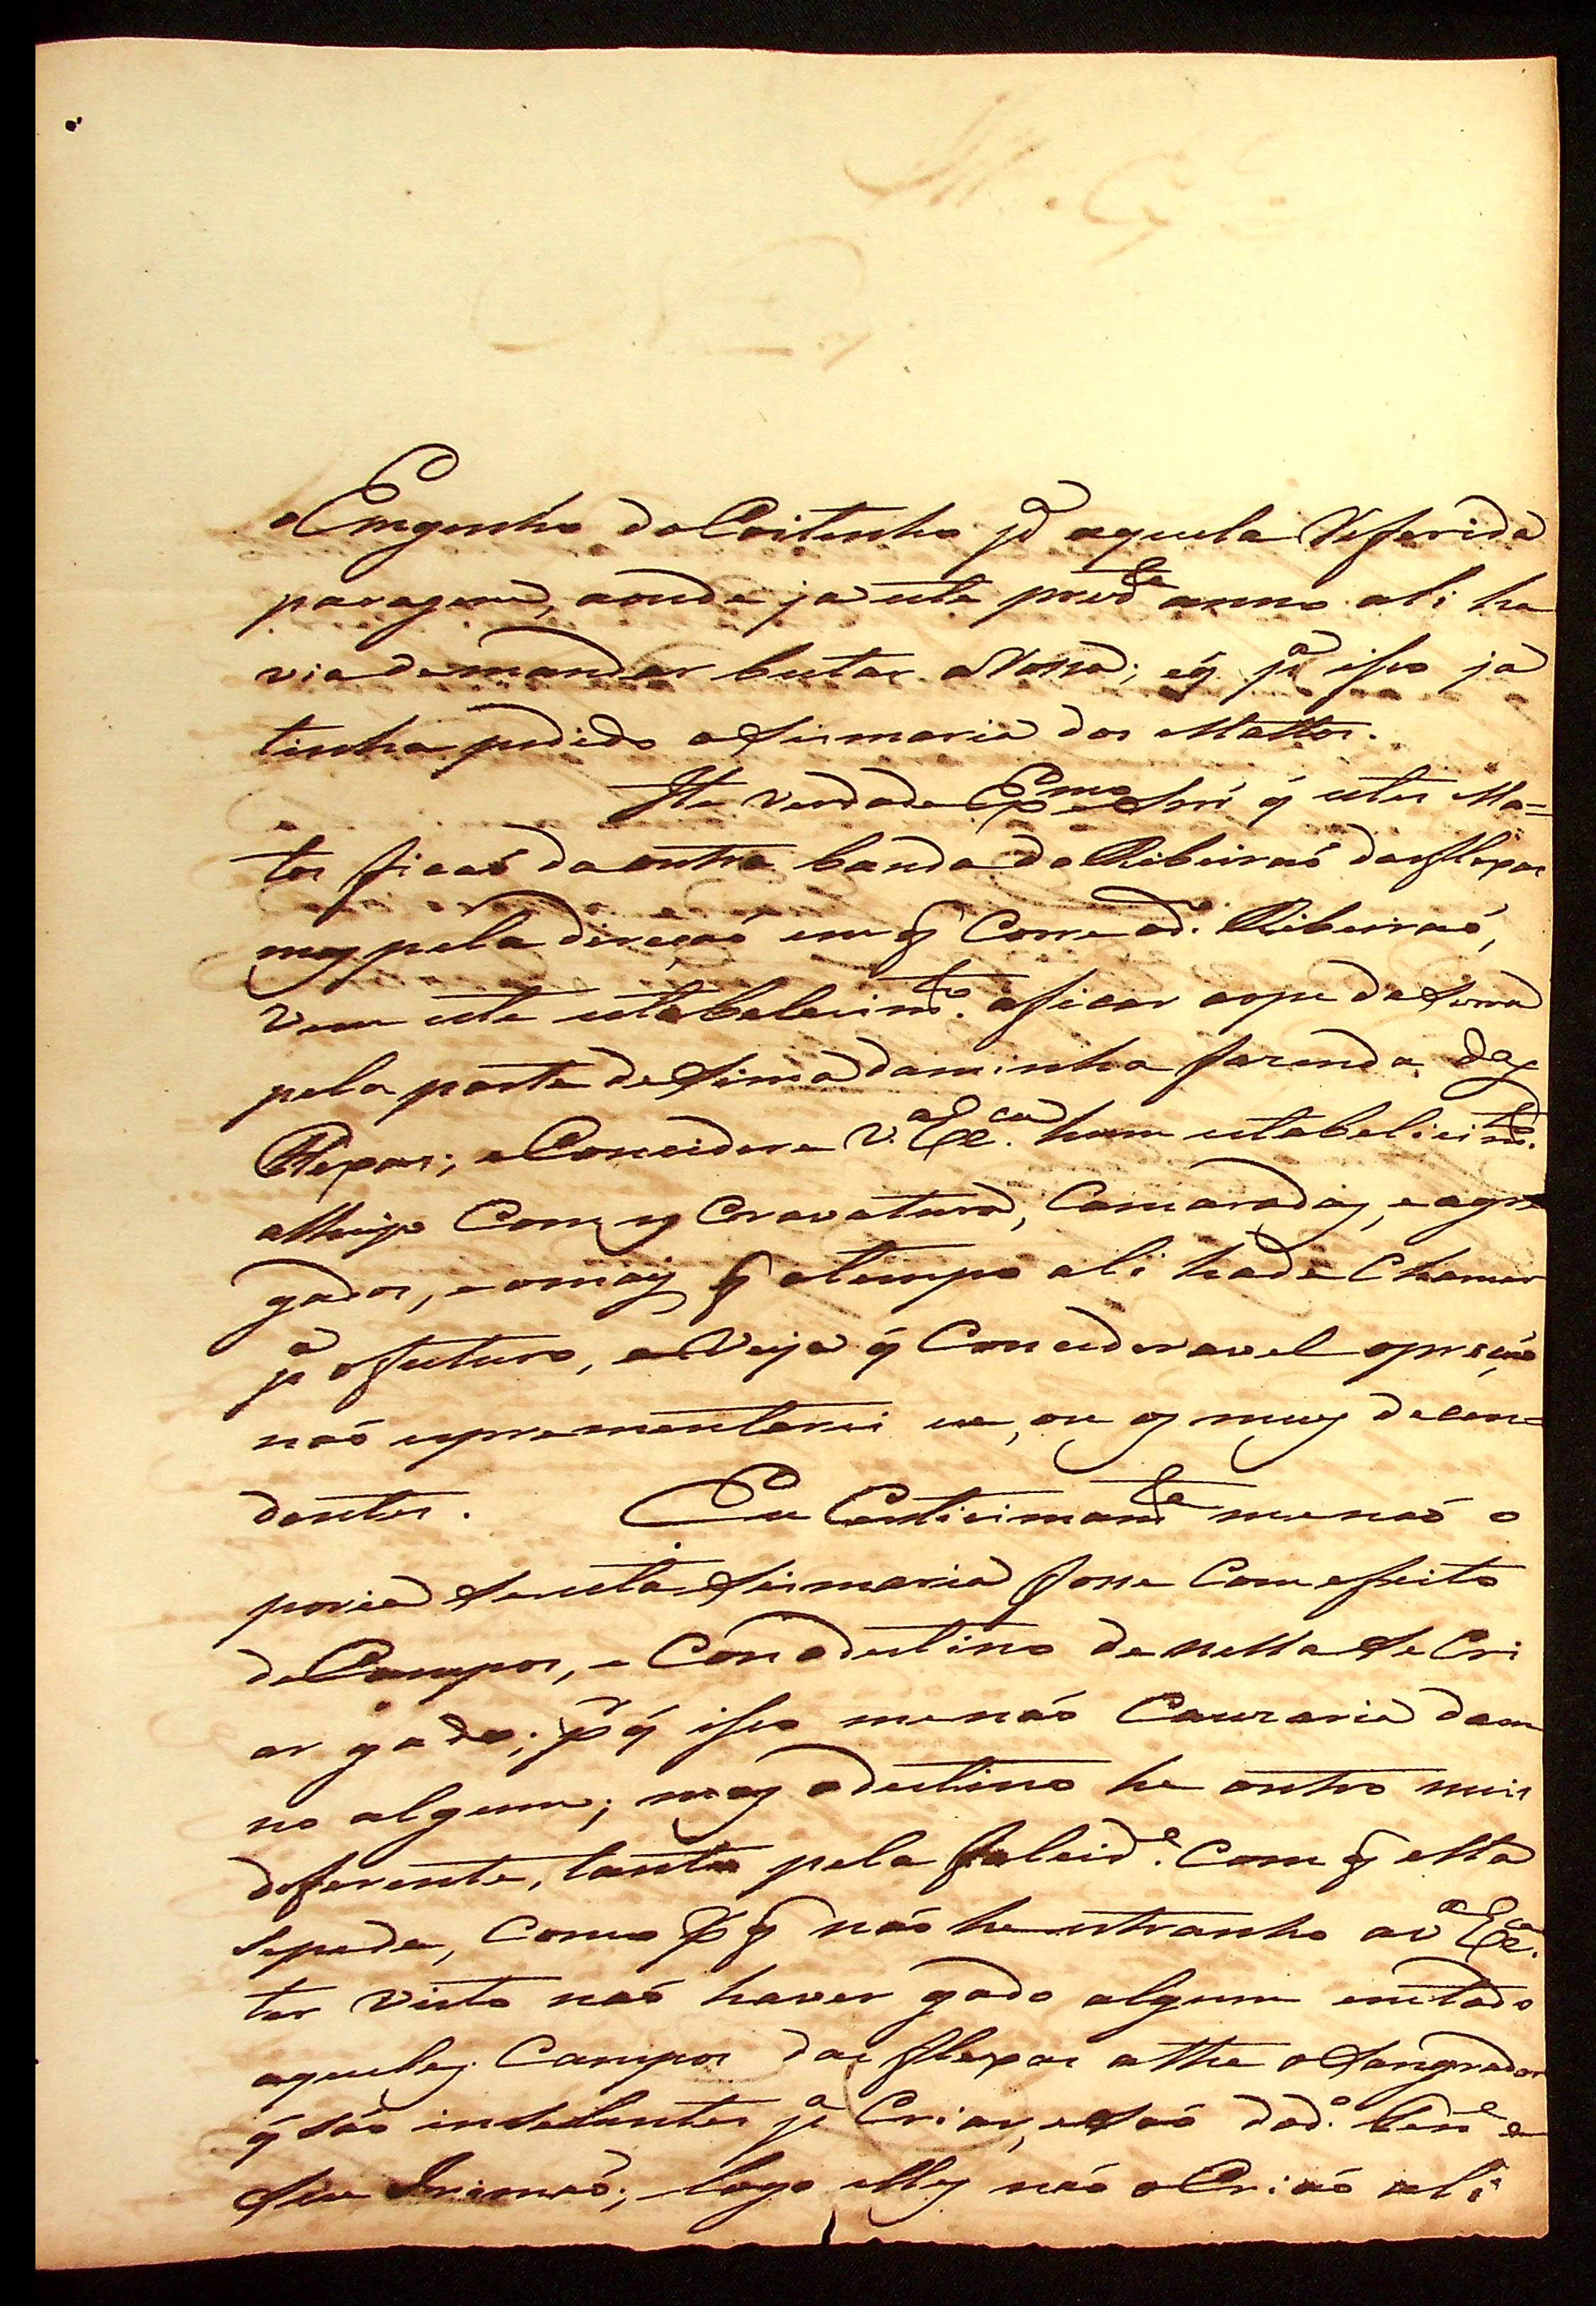 o Emgenho do Coitinho pª aquela Referida
paragem, aonde ja este prezᵗᵉ anno ali ha
via de mandar butar a Rossa; e q̃ pª isso ja
tinha pedido a Sismaria dos Mattos.
He verdade Exᵐᵒ Snr̃ q̃ estes Ma=
tos ficaó da outra banda do Ribeiraó das flexas
mas pela direcaó em q̃ Corre o dº Ribeiraó,
vem este estabelecimᵗᵒ a ficar ao pe da Serra
pela parte de Sima da minha fazenda das
Flexas; e Concidere V. Exᶜᵃ hum estabelicimᵗᵒ
alheyo Com es Cravatura, Camaradas, e agre
gados, e o mais q̃ o tempo ali hade Chamar
pª o futuro, e Veija q̃ Concideravel opreçaó
naó esprementarei eu, ou os meus decen=
dentes. Eu Certicimamᵗᵉ me naó o
poria Se esta Sismaria fosse Com efeito
de Campos, e Con o destino de nella Se Cri
ar gado; pʳ q̃ isso me naó Cauzaria dam
no algum; mas o destino he outro mui
deferente, tanto pela falcidᵉ Com q̃ ella
Se pede, Como pʳ q̃ naó he estranho a V. Exᶜᵃ
ter visto naó haver gado algum em todos
aqueles Campos das flexas athe o Sangrador
q̃ saó incelentes pª Criar, e saó do dº Tenᵉ e
Seu Irimaó; logo elles naó o Criaó ali